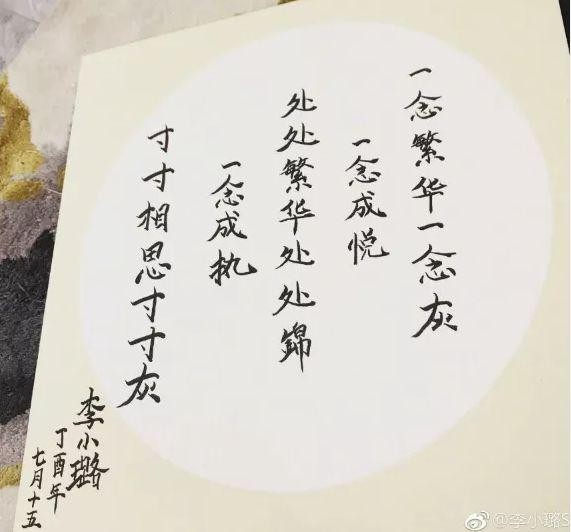 一念繁华一念灰
一念成悦
处处繁华处处錦
一念成执
寸寸相思寸寸灰
李小璐
丁酉年
七月十五
@李小璐S